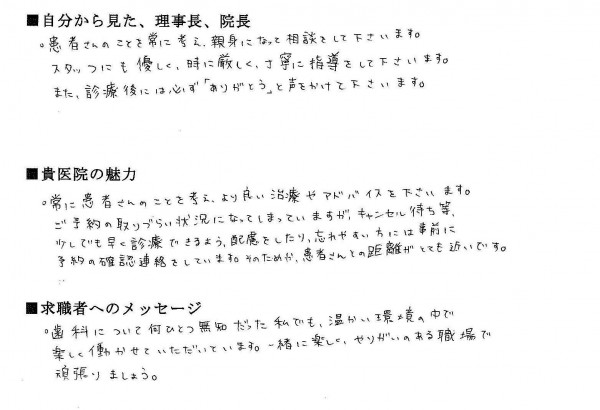 ■自分から見た、理事長、院長
。患者さんのことを常に考え、親身になって相談をして下さいます。
スタッフにも優しく、時に厳しく、丁寧に指導をして下さいます。
また、診療後には必ず「ありがとう」と声をかけて下さいます。
■貴医院の魅力
。常に患者さんのことを考え、より良い治療やアドバイスを下さいます。
ご予約の取りづらい状況になってしまっていますが、キャンセル待ち等、
少しでも早く診療できるよう、配慮をしたり、忘れやすい方には事前に
予約の確認連絡をしています。そのためか、患者さんとの距離がとても近いです。
■求職者へのメッセージ
。歯科について何ひとつ無知だった私でも、温かい環境の中で
楽しく働かせていただいています。一緒に楽しく、やりがいのある職場で
頑張りましょう。